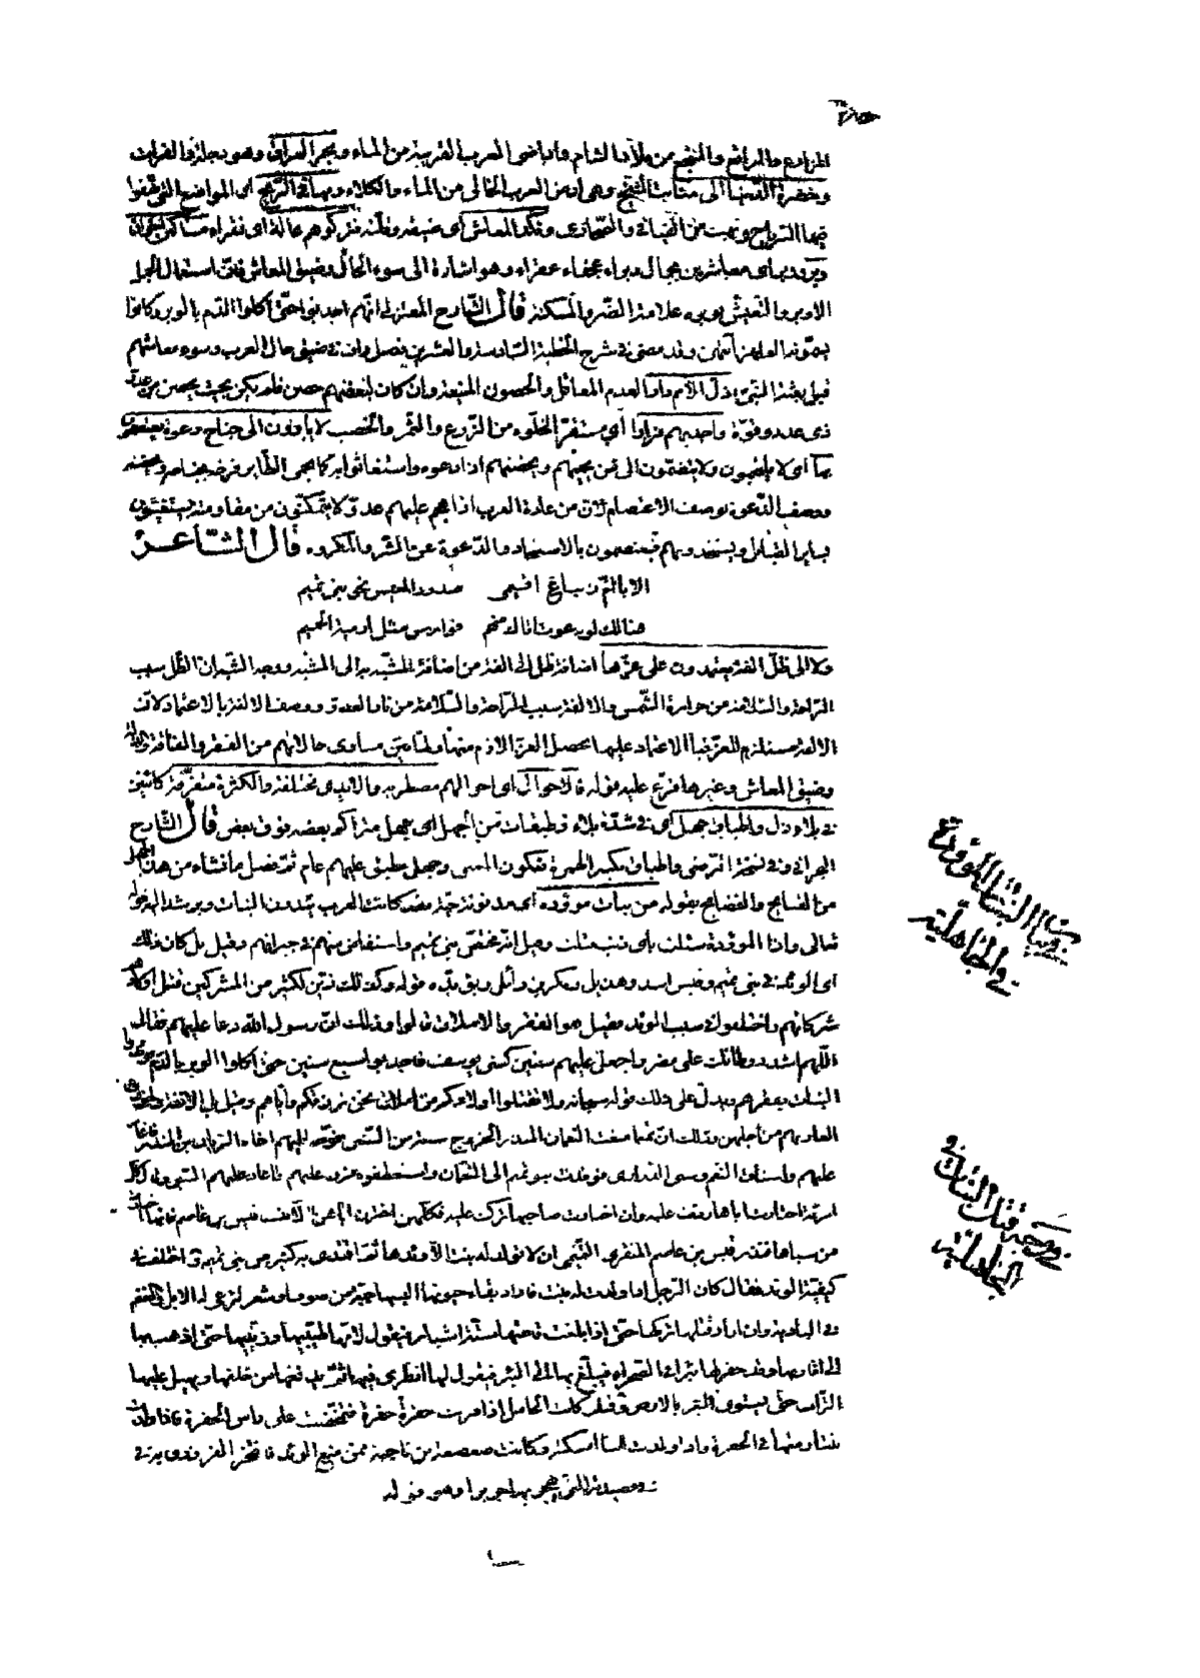 المزارع والمراتع والمنتجع من بلاد الشام وأراضى العرب القريبة من الماء وبحر العراق وهو دجلة والفرات
وخضرة الدنيا الى منابت الشيح وهى أرض العرب الخالى من الماء والكلاء ومهافى الريح أى المواضع التى تهفوا
فيها الرياح وتهب من الفيافى والصحارى ونكد المعاش أى ضيقه وقلته فتركوهم عالة أى فقراء مساكين اخوان
دبر ووبر أى معاشرين جمال دبراء عجفاء عقراء وهو اشارة الى سوء الحال وضيق المعاش فان استعمال الجمل
الادبر والتعيش بوبره علامة الضر والمسكنة قال الشارح المعتزلى انهم اجدبوا حتى أكلوا الدم بالوبر وكانوا
يسمونه العلهز وقد مضى فى شرح الخطبة السادسة والعشرين فصل واف فى ضيق حال العرب وسوء معاشهم
قبل بعثة النبى أذل الأمم دارا لعدم المعاقل والحصون المنيعة وان كان لبعضهم حصن فلم يكن بحيث يحصن من عدو
ذى عدد وقوة وأجدبهم قرارا أى مستقرا لخلوه من الزرع والثمر والخصب لا يأوون الى جناح دعوة يعتصمون
بها أى لا يلتجئون ولا ينضمون الى من يحميهم ويحضنهم اذا دعوه واستغاثوا به كما يحمى الطائر فرخه بجناحه ويحضنه
ووصف الدعوة بوصف الاعتصام لان من عادة العرب اذا هجم عليهم عدو لا يتمكنون من مقاومته يستغيثون
بساير القبائل ويستنجدونهم فيعتصمون بالاستنجاد والدعوة عن الشر والمكروه قال الشاعر
الا يا أم زنباع اقيمى صدور العيس نحو بنى تميم
هنالك لو دعوت أتاك منهم فوارس مثل ارمية الحميم
ولا الى ظل الفة يعتمدون على عزها اضافة ظل الى الفة من اضافة المشبه به الى المشبه ووجه الشبه ان الظل سبب
الراحة والسلامة من حرارة الشمس والالفة سبب الراحة والسلامة من نار العدو ووصف الالفة بالاعتماد لان
الالفة مستلزم للعز فبالاعتماد عليها يحصل العز اللازم منها ولما بين مساوى حالاتهم من الفقر والفاقة والذلة
وضيق المعاش وغيرها فرع عليه قوله فالاحوال أى احوالهم مضطربة والايدى مختلفة والكثرة متفرقة كائنين
فى بلاء أزل واطباق جهل أى فى شدة بلاء وطبقات من الجهل أى جهل متراكم بعضه فوق بعض قال الشارح
البحرانى وفى نسخة الرضى واطباق بكسر الهمزة فيكون المعنى وجهل مطبق عليهم عام ثم فصل ما نشاء من هذا الجهل
من القبايح والفضايح بقوله من بنات موؤدة أى مدفونة حية فقد كانت العرب يئدون البنات ويرشد اليه قوله
تعالى واذا الموؤدة سئلت بأى ذنب قتلت وقيل انه مختص ببنى تميم واستفاض منهم فى جيرانهم وقيل بل كان ذلك
أى الوئد فى بنى تميم وقيس وأسد وهذيل وبكر بن وائل ويؤيده قوله وكذلك زين لكثير من المشركين قتل اولادهم
شركائهم واختلفوا فى سبب الوئد فقيل هو الفقر والاملاق قالوا وذلك ان رسول الله دعا عليهم فقال
اللهم اشدد وطأتك على مضر واجعل عليهم سنين كسنى يوسف فاجدبوا سبع سنين حتى أكلوا الوبر بالدم
البنات لفقرهم ويدل على ذلك قوله سبحانه ولا تقتلوا أولادكم من املاق نحن نرزقكم واياهم وقيل بل الانفة ولحوق
العار بهم من أجلهن وذلك ان تميما منعت النعمان الخراج سنة من السنين فوجه اليهم اخاه الريان بن المنذر فأغار
عليهم واستاق النعم وسبى الذرارى فوفدت بنو تميم الى النعمان واستعطفوه فرق عليهم فأعاد عليهم السبى وقال كل
امرأة اختارت أباها ردت عليه وان اختارت صاحبها تركت عليه فكلهن اخترن اباهن الا بنت قيس بن عاصم فانها اختارت
من سباها فنذر قيس بن عاصم المنقرى التميمى ان لا يولد له بنت الا وئدها ثم اقتدى به كثير من بنى تميم واختلف فى
كيفية الوئد فقال كان الرجل اذا ولدت له بنت فاراد بقاء حيوتها البسها جبة من صوف أو شعر لترعى له الابل والغنم
فى البادية وان أراد قتلها تركها حتى اذا بلغت قامتها ستة اشبار فيقول لامها طيبيها وزينيها حتى اذهب بها
الى أقاربها وقد حفر لها بئرا فى الصحراء فيبلغ بها الى البئر فيقول لها انظرى فيها ثم يدفعها من خلفها ويهيل عليها
التراب حتى يستوى البئر بالارض وقيل كانت الحامل اذا قربت حفرة حفرة فتمخضت على رأس الحفرة فاذا ولدت
بنتا رمتها فى الحفرة واذا ولدت ابنا امسكته وكانت صعصعة بن ناجية ممن منع الوئد فافتخر الفرزدق به فى
قصيدته التى يهجو بها جريرا وهو قوله
البنات الموؤدة
فى الجاهلية
فى وجه قتل البنات فى
الجاهلية